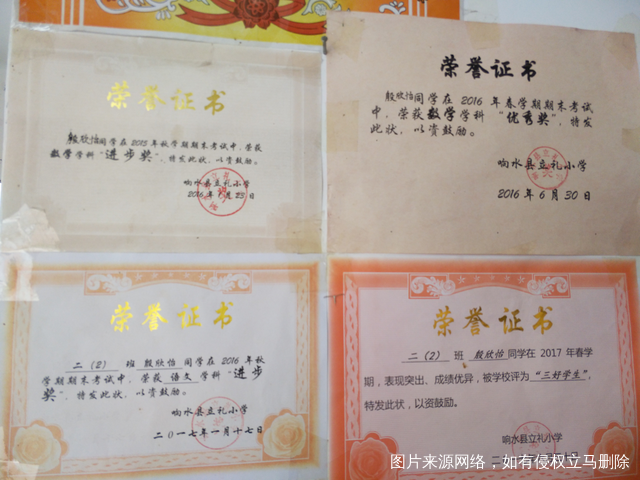 荣誉证书
殷欣怡同学在2015年秋学期期末考试中,荣获
数学学科“进步奖”,特发此状,以资鼓励。
响水县立礼小学
荣誉证书
殷欣怡同学在2016年春学期期末考试
中,荣获数学学科“优秀奖”,特发
此状,以资鼓励。
响水县立礼小学
2016年6月30日
荣誉证书
二(2)班殷欣怡同学在2016年秋
学期期末考试中,荣获语文学科“进步
奖”,特发此状,以资鼓励。
响水县立礼小学
二〇一七年一月十七日
荣誉证书
二(2)班殷欣怡同学在2017年春学
期,表现突出、成绩优异,被学校评为“三好学生”,
特发此状,以资鼓励。
响水县立礼小学
图片来源网络,如有侵权立马删除